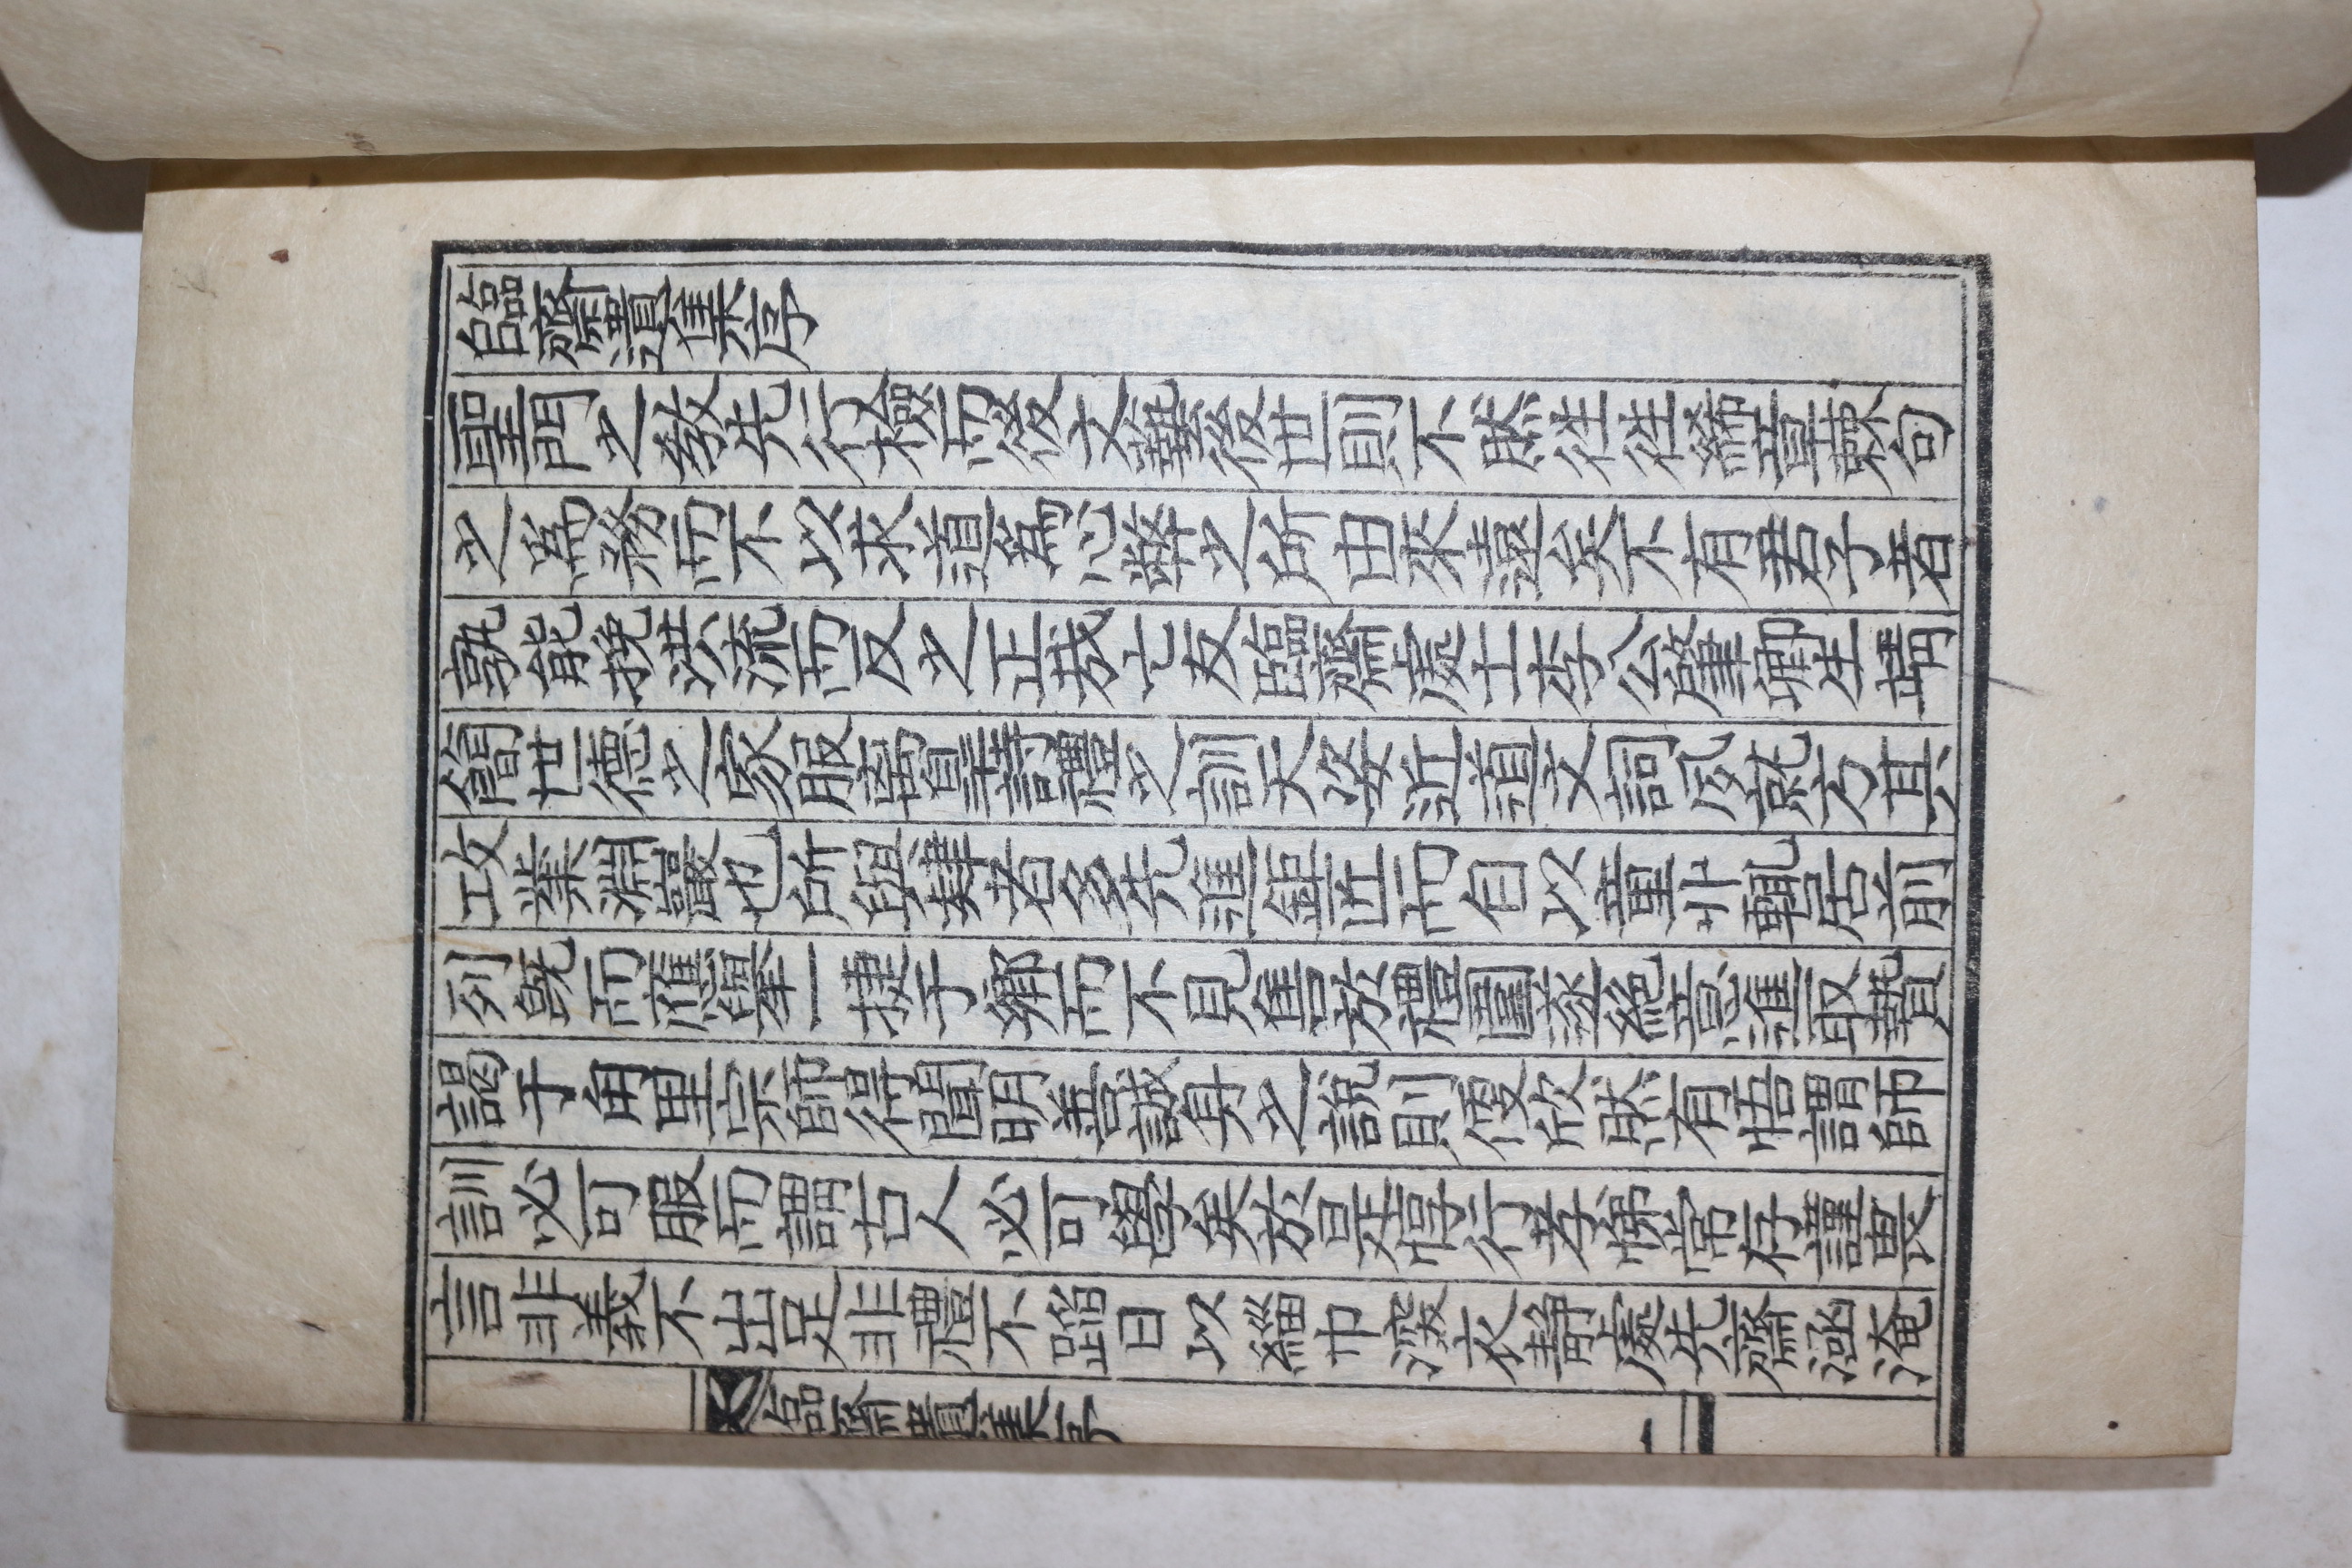 臨齋遺集序
聖門之敎先行檢而後文藝後世則不然徃徃絺章棘句
之爲務而不以求道爲心弊之所由來遠矣不有君子者
孰能挽洪流而反之正哉亡友臨齋處士李公肇卿生靖
簡世德之家服离皐詩禮之訓天姿近道文詞夙就方其
攻業淵巖也所與肄者多先進鉅匠而自以童丱輒居前
列旣而應擧一捷于鄉而不見售於禮圍遂絕意進取贄
謁于甪里宗師得聞明善誠身之說則便欣然有悟謂師
訓必可服而謂古人必可學矣於是惇行孝悌常存謹畏
言非義不出足非禮不蹈日以緇巾深衣靜處先齋涵淹
臨齋遺集序
一